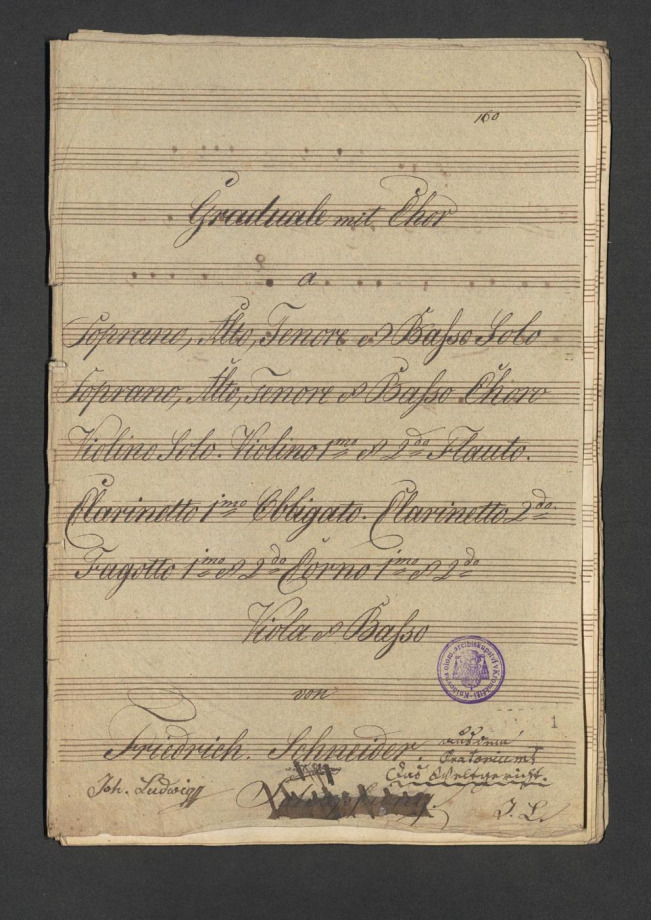 160
Graduale mit Chor
a
Soprano, Alto, Tenore et Basso Solo
Soprano, Alto, Tenore et Basso Choro
Violino Solo. Violino 1mo et 2do Flauto.
Clarinetto 1mo Obligato. Clarinetto 2do
Fagotto 1mo et 2do Corno 1mo et 2do
Viola et Basso
von
Friedrich. Schneider
aus dem
Oratorium
(das Weltgericht.
Joh. Ludwig
J. L.
1